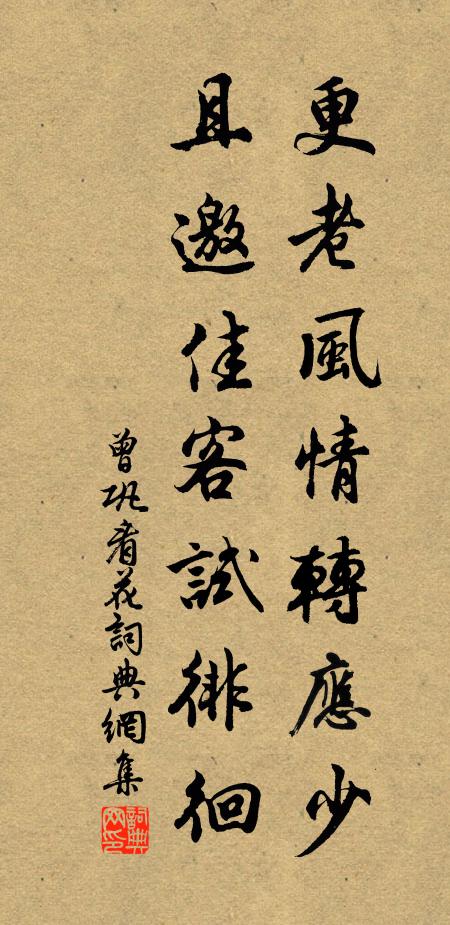 更老風情轉應少
且邀佳客試徘徊
曾巩看花詞典網集
詞典網印